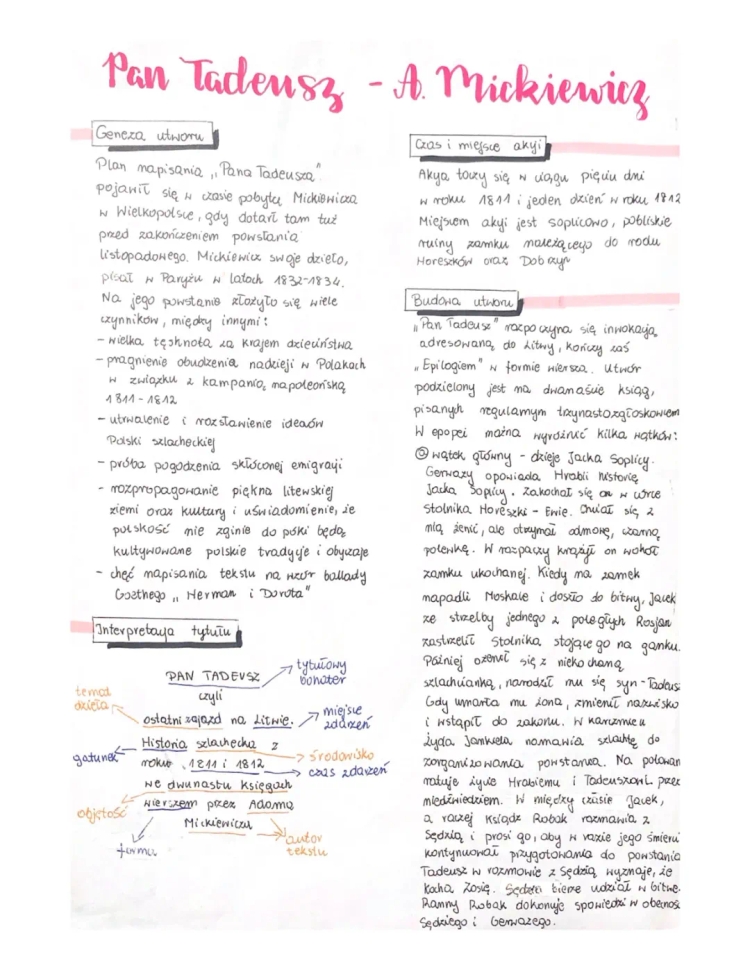 Pan Tadeusz - A. Mickiewicz
Geneza utworu
Plan napisania „Pana Tadeusza"
pojawił się w czasie pobytu Mickiewicza
w Wielkopolsce, gdy dotarł tam tuż
przed zakończeniem powstania
listopadowego. Mickiewicz swoje dzieło,
pisał w Paryżu w latach 1832-1834.
Na jego powstanie złożyło się wiele
czynników, między innymi:
- wielka tęsknota za krajem dzieciństwa
- pragnienie obudzenia nadzieji w Polakach
w związku z kampanią napoleońską
1811-1812
- utrwalenie i rozsławienie ideałów
Polski szlacheckiej
- próba pogodzenia skłóconej emigracji
- rozpropagowanie piękna litewskiej
ziemi oraz kultury i uświadomienie, że
polskość nie zginie do póki będą
kultywowane polskie tradycje i obyczaje
- chęć napisania tekstu na wzór ballady
Goethego „Herman i Dorota"
Interpretacja tytułu
PAN TADEUSZ
tytułowy
bohater
czyli
temat
dzieła
ostatni zajazd na Litwie.
miejsce
zdarzeń
Historia szlachecka z
gatunek
roku 1811 i 1812
środowisko
czas zdarzeń
we dwunastu księgach
objętość
wierszem przez Adama
Mickiewicza
forma
autor
tekstu
Czas i miejsce akcji
Akcja toczy się w ciągu pięciu dni
w roku 1811 i jeden dzień w roku 1812
Miejscem akcji jest Soplicowo, pobliskie
ruiny zamku należącego do rodu
Horeszków oraz Dobrzyn
Budowa utworu
„Pan Tadeusz" rozpoczyna się inwokacją
adresowaną do Litwy, kończy zaś
„Epilogiem" w formie wiersza. Utwór
podzielony jest na dwanaście ksiąg,
pisanych regularnym trzynastozgłoskowiem
W epopei można wyróżnić kilka wątków:
wątek główny - dzieje Jacka Soplicy.
Gerwazy opowiada Hrabii historię
Jacka Soplicy. Zakochał się on w córce
Stolnika Horeszki - Ewie. Chciał się z
nią żenić, ale otrzymał odmowę, czarną
polewkę. W rozpaczy krążył on wokół
zamku ukochanej. Kiedy na zamek
napadli Moskale i doszło do bitwy, Jacek
ze strzelby jednego z poległych Rosjan
zastrzelił Stolnika stojącego na ganku.
Później ożenił się z niekochaną
szlachcianką, narodził mu się syn - Tadeusz
Gdy umarła mu żona, zmienił nazwisko
i wstąpił do zakonu. W karczmie u
Żyda Jankiela namawia szlachtę do
zorganizowania powstania. Na polowan
ratuje życie Hrabiemu i Tadeuszowi przed
niedźwiedziem. W między czasie Jacek,
a raczej Ksiądz Robak rozmawia z
Sędzią i prosi go, aby w razie jego śmierci
kontynuował przygotowania do powstania
Tadeusz w rozmowie z Sędzią wyznaje, że
kocha Zosię. Sędzia bierze udział w bitwie.
Ranny Robak dokonuje spowiedzi w obecnoś
Sędziego i Gerwazego.